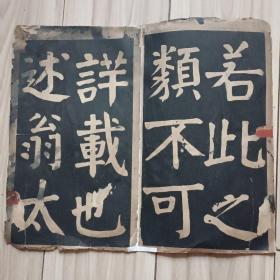 若此之
類不可
詳載也
述翁太